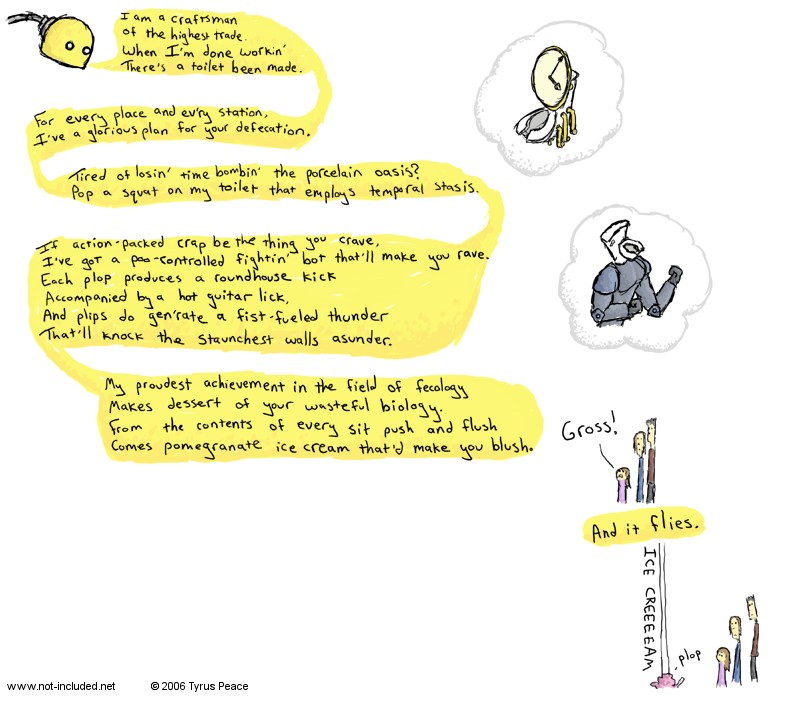 I am a craftsman
of the highest trade.
When I'm done workin'
There's a toilet been made.
For every place and ev'ry station,
I've a glorious plan for your defecation.
Tired of losin' time bombin' the porcelain oasis?
Pop a squat on my toilet that employs temporal stasis.
If action-packed crap be the thing you crave,
I've got a poo-controlled fightin' bot that'll make you rave.
Each plop produces a roundhouse kick
Accompanied by a hot guitar lick,
And plips do gen'rate a fist-fueled thunder
That'll knock the staunchest walls asunder.
My proudest achievement in the field of fecology
Makes dessert of your wasteful biology.
From the contents of every sit push and flush
Comes pomegranate ice cream that'd make you blush.
Gross!
And it flies.
ICE CREEEEAM
plop
www.not-included.net © 2006 Tyrus Peace